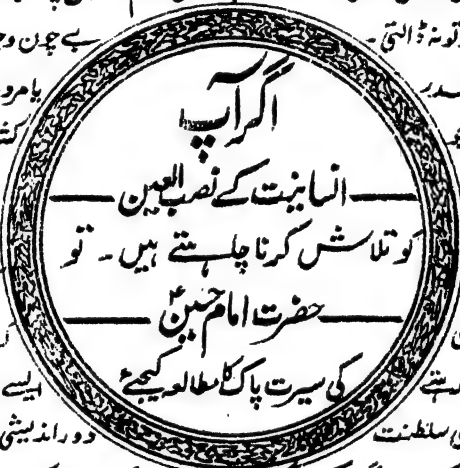 اگر آپ
انسانیت کے نصب العین
کو تلاش کرنا چاہتے ہیں۔ تو
حضرت امام حسینؑ
کی سیرت پاک کا مطالعہ کیجئے
تو نہ ڈالتی۔
بے چون و
ایسے
سلطنت
دور اندیشی